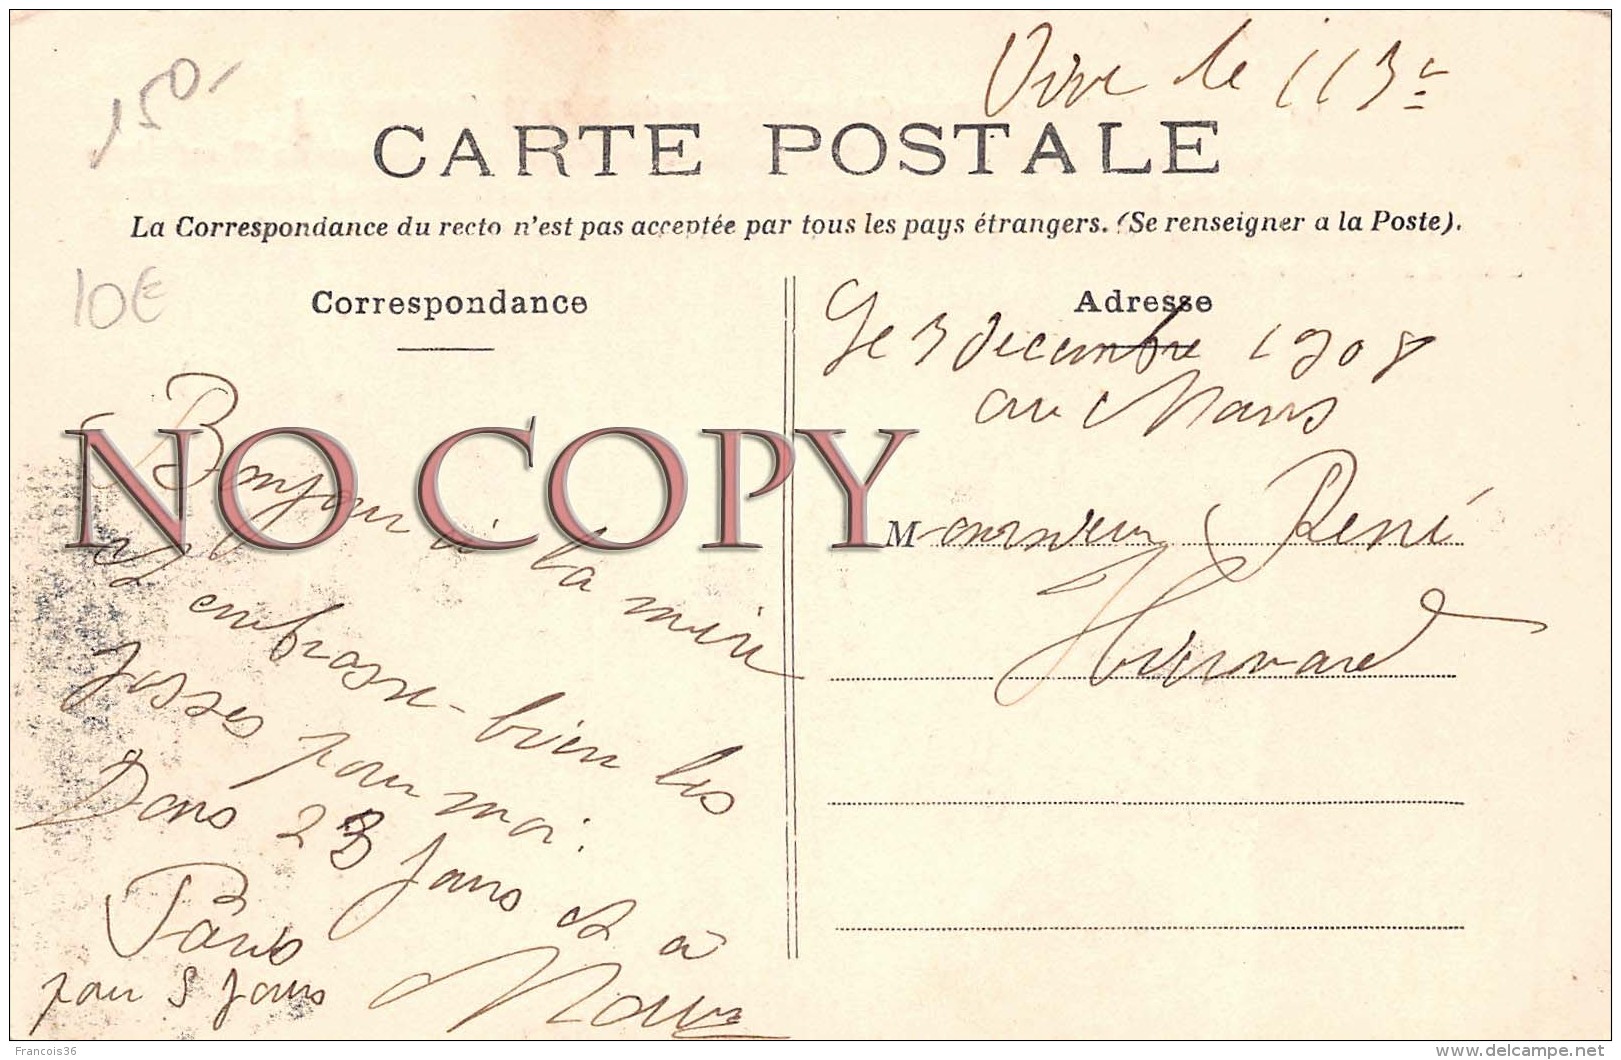 Vive le 113e
150-
CARTE POSTALE
La Correspondance du recto n'est pas acceptée par tous les pays étrangers. (Se renseigner a la Poste).
10€
Correspondance
Bonjour à la
et embrasse bien les
pour moi.
Dans 23 jours et à
Paris
pour 5 jours
Adresse
Le 3 decembre 1908
au Mans
Monsieur René
NO COPY
Francois36
delcampe.net